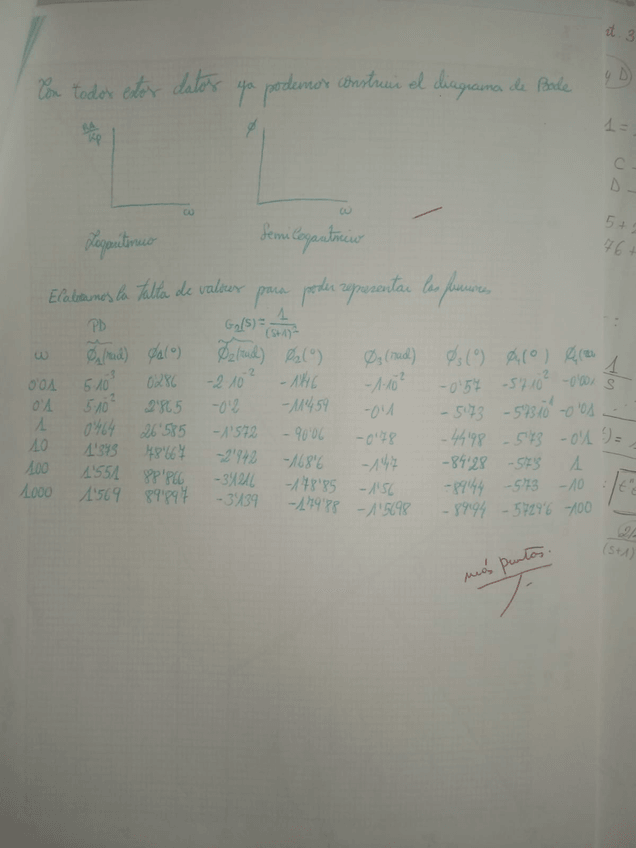 Con todos estos datos ya podemos construir el diagrama de Bode
ϕ
ω
ω
Logarítmico
Semilogarítmico
Elaboramos la tabla de valores para poder representar las funciones
PD
G₂(s) = 1/(s+1)²
ω ϕ₁(rad) ϕ₁(°) ϕ₂(rad) ϕ₂(°) ϕ₃(rad) ϕ₃(°) ϕ₄(°)
0'01 5·10⁻³ 0'286 -2·10⁻² -1'146 -1·10⁻² -0'57 -5'7·10⁻² -0'001
0'1 5·10⁻² 2'865 -0'2 -11'459 -0'1 -5'73 -5'73·10⁻¹ -0'01
1 0'464 26'585 -1'572 -90'06 -0'78 -44'98 -5'73 -0'1
10 1'373 78'667 -2'942 -168'6 -1'47 -84'28 -573 1
100 1'551 88'866 -3'1216 -178'85 -1'56 -89'44 -573 -10
1000 1'569 89'897 -3'139 -179'88 -1'5698 -89'94 -5729'6 -100
más puntos.